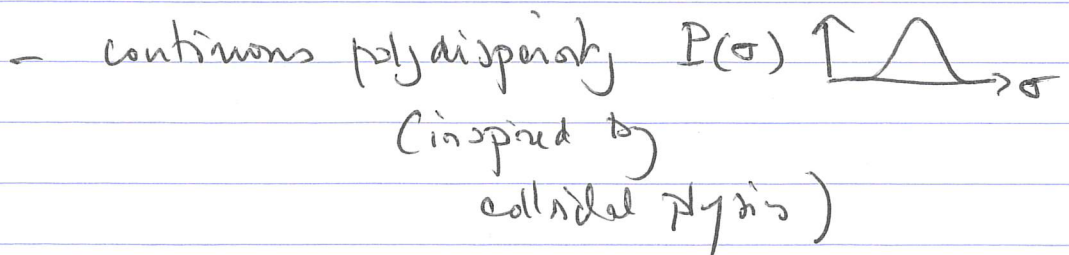 - continuous polydispersity P(σ) σ
(inspired by
colloidal physics)